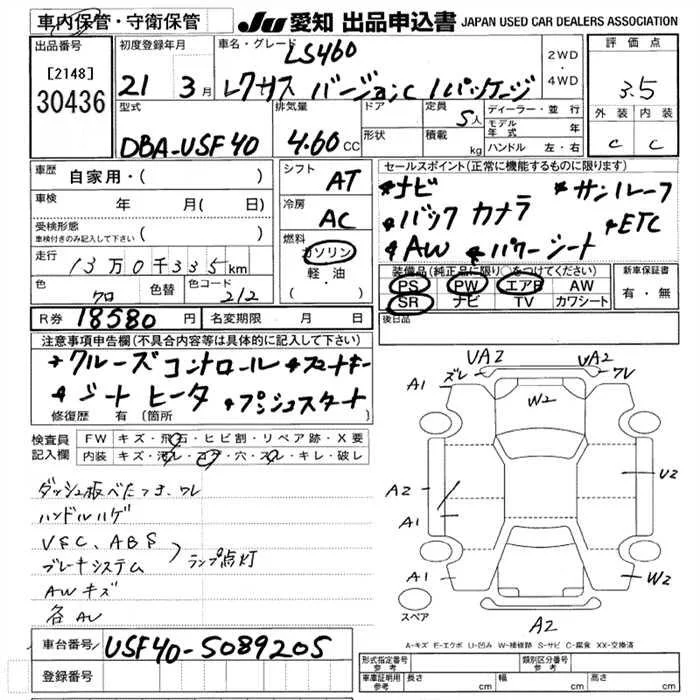 車内保管・守衛保管
JU 愛知 出品申込書 JAPAN USED CAR DEALERS ASSOCIATION
出品番号
[2148]
30436
初度登録年月
21 3月
車名・グレード
LS460
レクサス バージョンC Iパッケージ
2WD
・
4WD
評価点
3.5
外装 内装
C C
型式
DBA-USF40
排気量
4.60 CC
ドア
形状
定員
5人
積載 kg
ディーラー・並行
モデル年式 年
ハンドル 左・右
車歴
自家用・( )
車検 年 月( 日)
受検形態
車検付きのみ記入して下さい ( )
走行
13万0千335km
色
クロ
色替
色コード
212
シフト
AT
冷房
AC
燃料
ガソリン
・
軽・油
( )
セールスポイント(正常に機能するものに限ります)
*ナビ *サンルーフ
*バックカメラ *ETC
*AW *パワーシート
装備品(純正品に限り○をつけてください)
PS PW エアB AW
SR ナビ TV カワシート
新車保証書
有・無
後日品
R券 18580円
名変期限 月 日
注意事項申告欄(不具合内容等は具体的に記入して下さい)
*クルーズコントロール *スマートキー
*シートヒータ *プッシュスタート
修復歴 有(箇所
検査員
記入欄
FW キズ・飛石・ヒビ割・リペア跡・X要
内装 キズ・汚レ・コゲ・穴・スレ・キレ・破レ
ダッシュ板べたつき、ワレ
ハンドルハゲ
VSC、ABS
ブレーキシステム
ランプ点灯
AWキズ
各AU
車台番号 USF40-5089205
登録番号
UA2 UA2
A1 ズレ ワレ
W2
A2 U2
A1
A1 W2
スペア
A2
A-キズ E-エクボ U-凹み W-補修跡 S-サビ C-腐食 XX-交換済
形式指定番号
参考
類別区分番号
参考
車庫証明用
参考
長さ cm 幅 cm 高さ cm